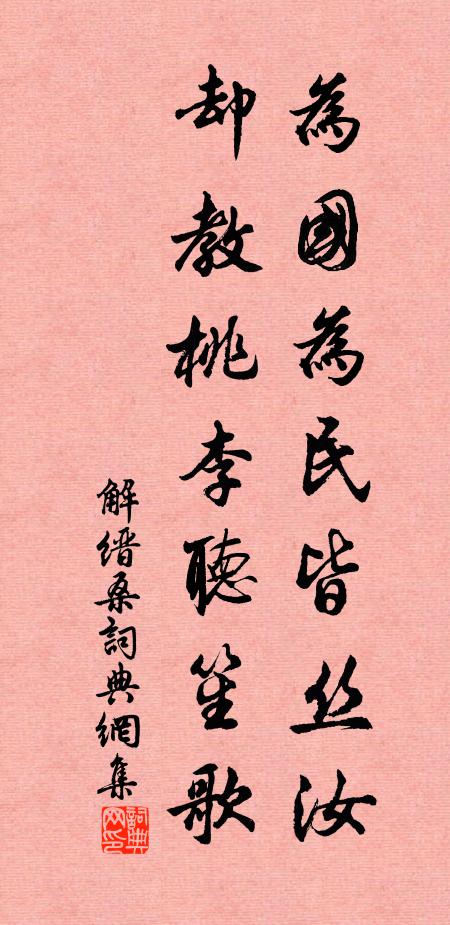 為國為民皆丝汝
却教桃李聽笙歌
解缙桑詞典網集
詞典網印